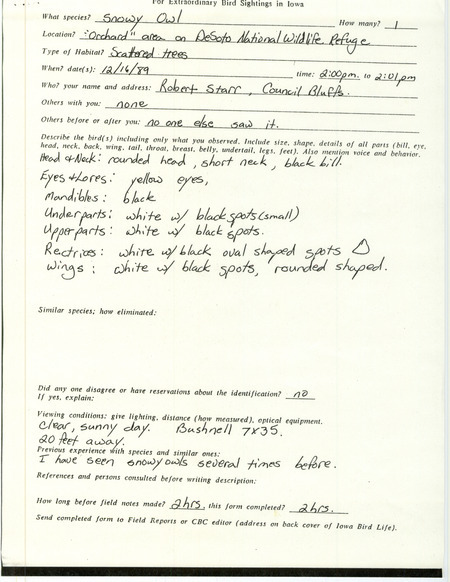 For Extraordinary Bird Sightings in Iowa
What species? Snowy Owl How many? 1
Location? "Orchard" area on DeSoto National Wildlife Refuge
Type of Habitat? Scattered trees
When? date(s): 12/16/89 time: 2:00pm. to 2:01pm
Who? your name and address: Robert Starr, Council Bluffs.
Others with you: none
Others before or after you: no one else saw it.
Describe the bird(s) including only what you observed. Include size, shape, details of all parts (bill, eye,
head, neck, back, wing, tail, throat, breast, belly, undertail, legs, feet). Also mention voice and behavior.
Head & Neck: rounded head, short neck, black bill.
Eyes & Lores: yellow eyes,
Mandibles: black
Underparts: white w/ black spots (small)
Upperparts: white w/ black spots.
Rectrices: white w/ black oval shaped spots
Wings: white w/ black spots, rounded shaped.
Similar species; how eliminated:
Did any one disagree or have reservations about the identification? no
If yes, explain:
Viewing conditions: give lighting, distance (how measured), optical equipment.
Clear, sunny day. Bushnell 7x35.
20 feet away.
Previous experience with species and similar ones:
I have seen snowy owls several times before.
References and persons consulted before writing description:
How long before field notes made? 2hrs. this form completed? 2hrs.
Send completed form to Field Reports or CBC editor (address on back cover of Iowa Bird Life).